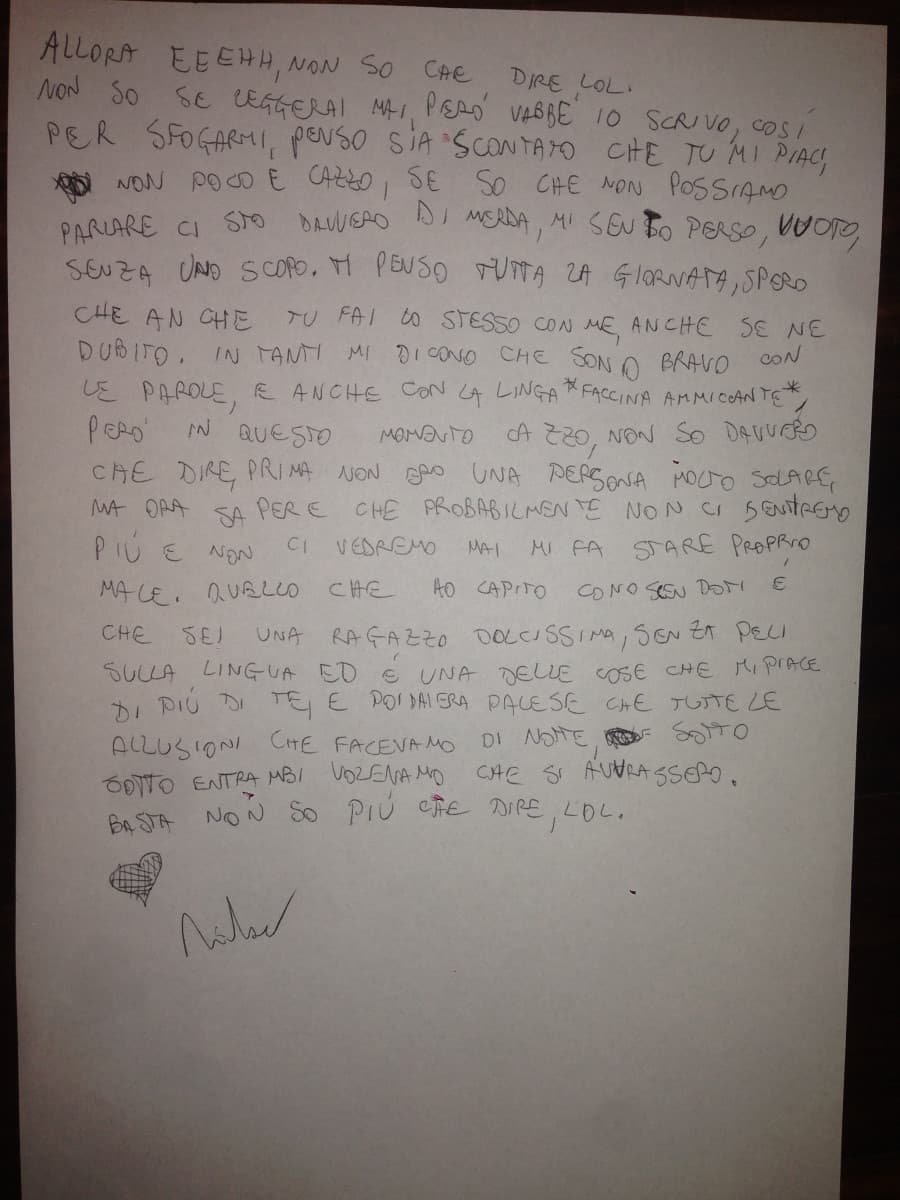 ALLORA EEEHH, NON SO CHE DIRE LOL.
NON SO SE LEGGERAI MAI, PERÓ VABBÉ IO SCRIVO, COSÍ
PER SFOGARMI, PENSO SIA SCONTATO CHE TU MI PIACI,
NON POCO E CAZZO, SE SO CHE NON POSSIAMO
PARLARE CI STO DAVVERO DI MERDA, MI SENTO PERSO, VUOTO,
SENZA UNO SCOPO. TI PENSO TUTTA LA GIORNATA, SPERO
CHE ANCHE TU FAI LO STESSO CON ME, ANCHE SE NE
DUBITO. IN TANTI MI DICONO CHE SONO BRAVO CON
LE PAROLE, E ANCHE CON LA LINGA *FACCINA AMMICCANTE*,
PERÓ IN QUESTO MOMENTO CAZZO, NON SO DAVVERO
CHE DIRE, PRIMA NON ERO UNA PERSONA MOLTO SOLARE,
MA ORA SAPERE CHE PROBABILMENTE NON CI SENTIREMO
PIÚ E NON CI VEDREMO MAI MI FA STARE PROPRIO
MALE. QUELLO CHE HO CAPITO CONOSCENDOTI É
CHE SEI UNA RAGAZZO DOLCISSIMA, SENZA PELI
SULLA LINGUA ED É UNA DELLE COSE CHE MI PIACE
DI PIÚ DI TE, E POI DAI ERA PALESE CHE TUTTE LE
ALLUSIONI CHE FACEVAMO DI NOTTE, SOTTO
SOTTO ENTRAMBI VOLEVAMO CHE SI AVVRASSERO.
BASTA NON SO PIÚ CHE DIRE, LOL.